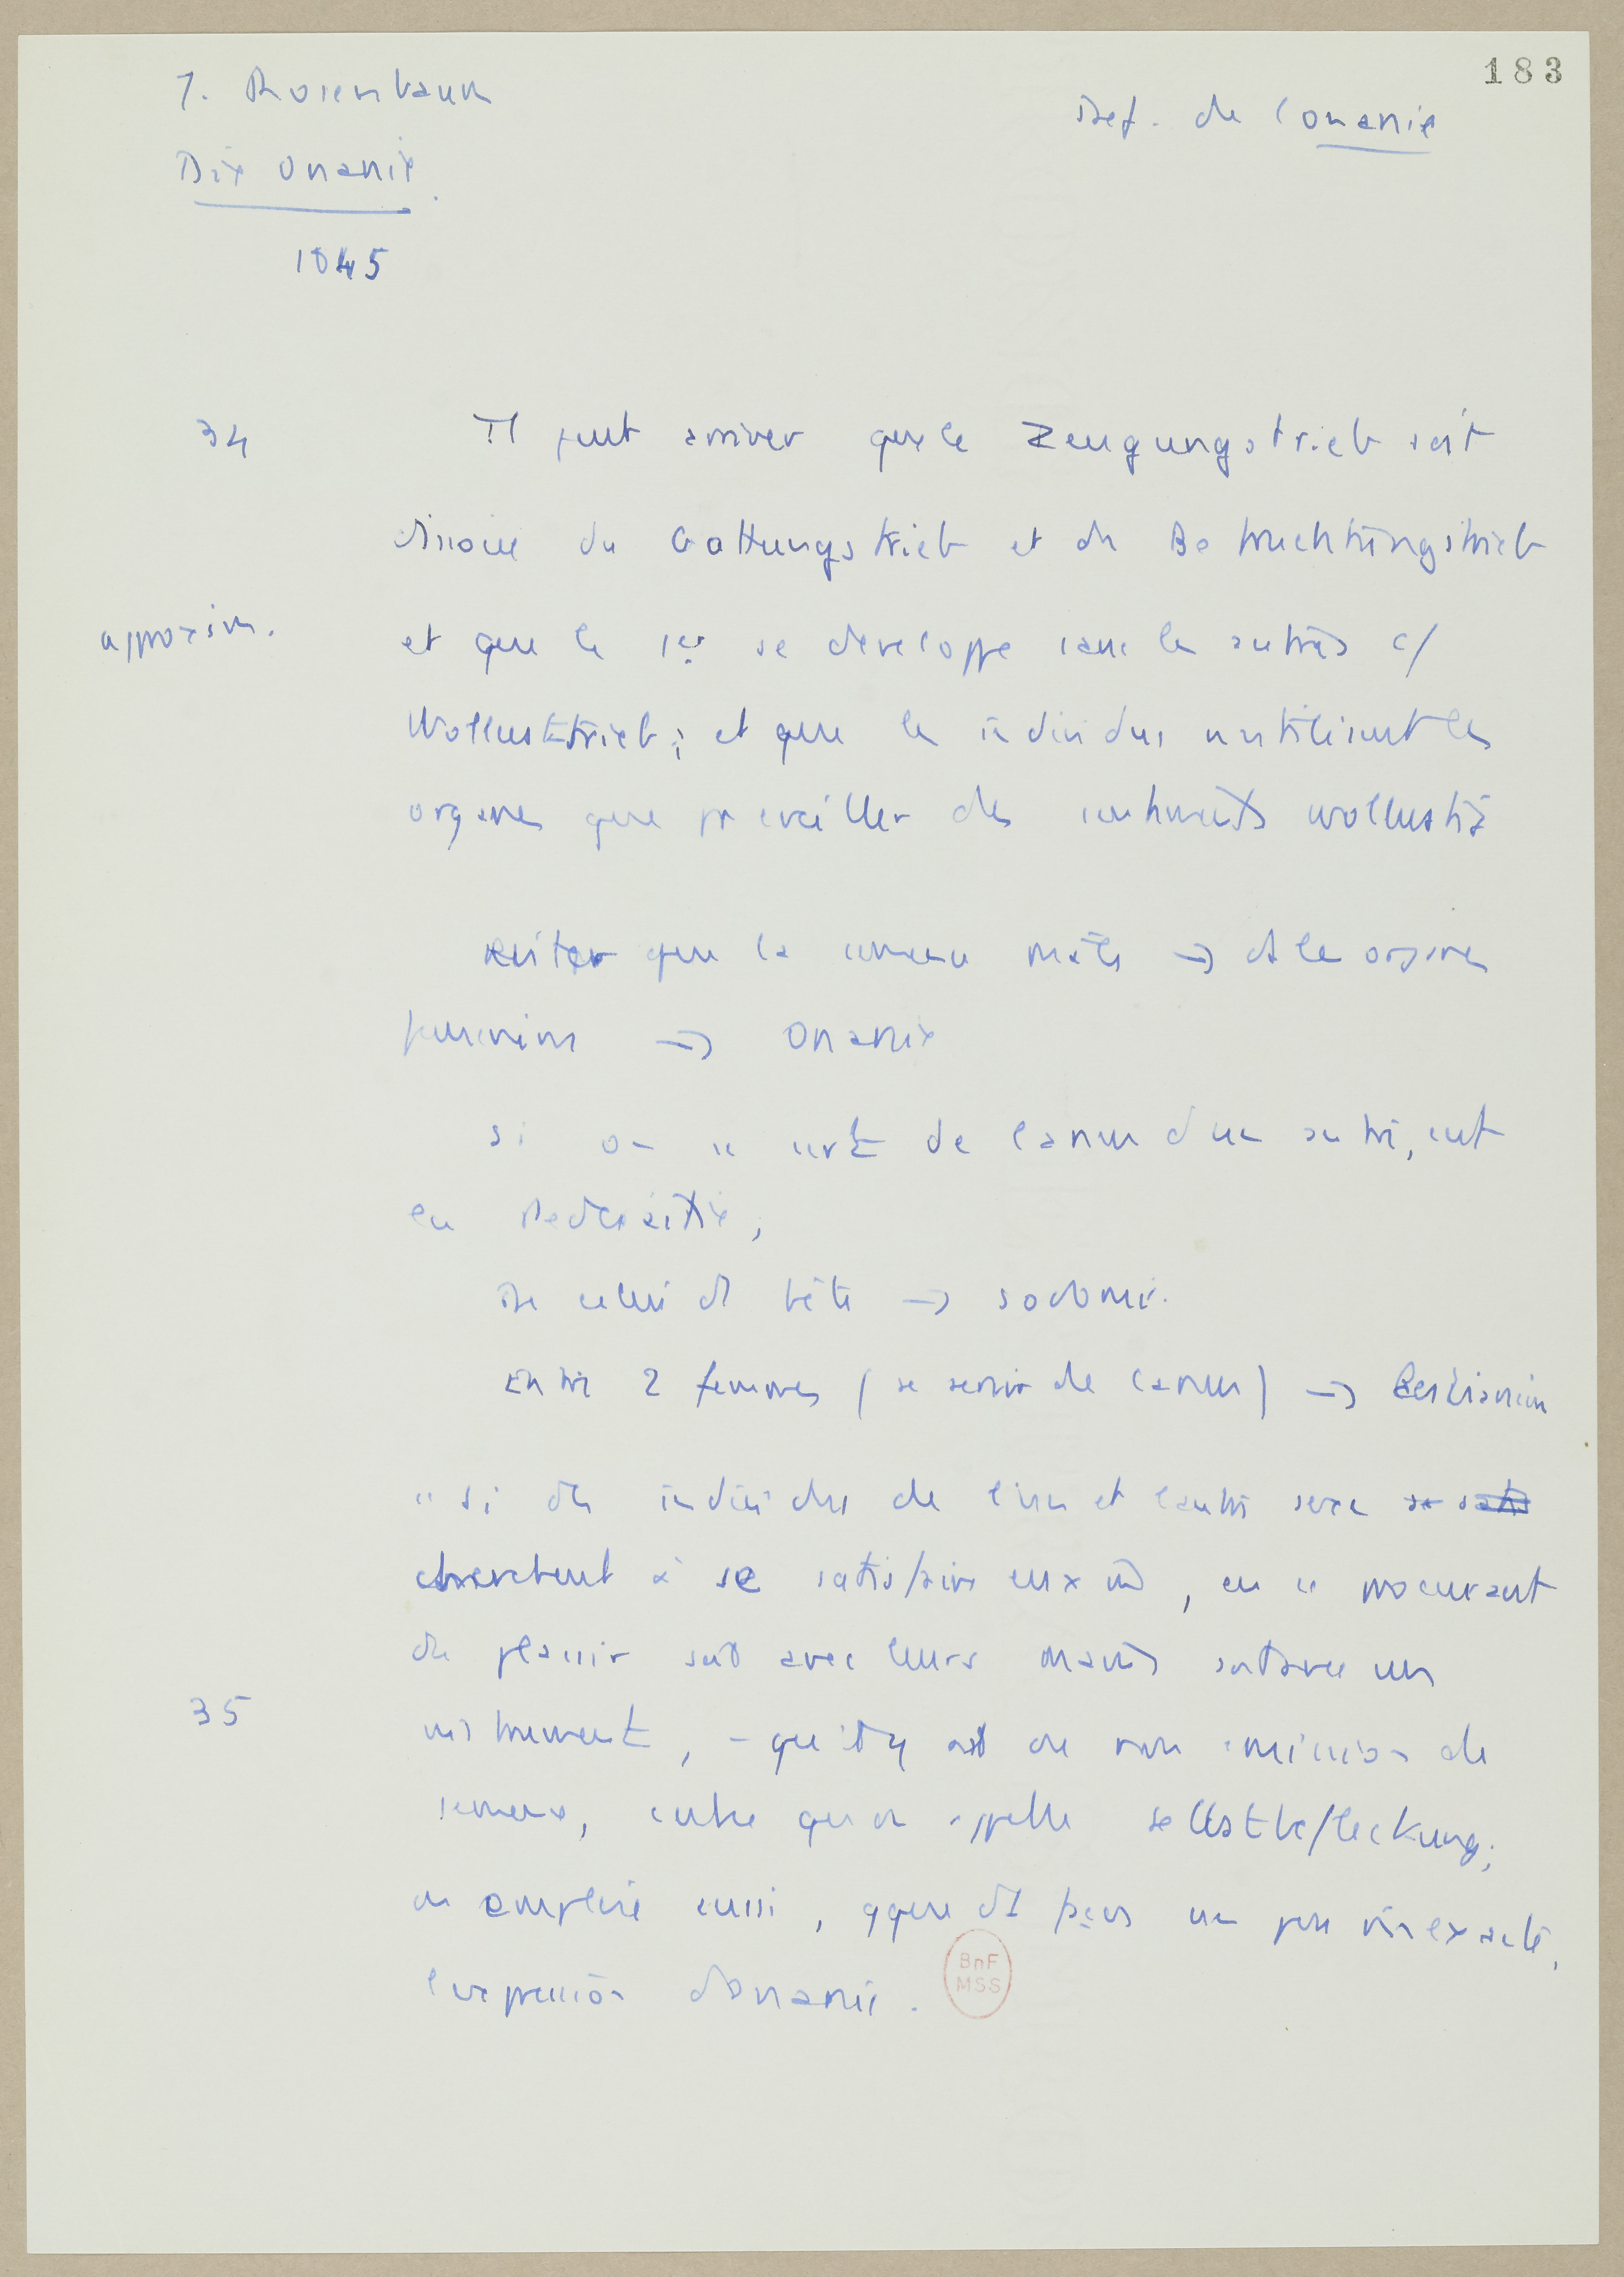 183
J. Rosenbaum
Déf. de l'onanie
Die Onanie.
1845
34 Il peut arriver que le Zeugungstrieb soit
dissocié du Gattungstrieb et du Befruchtungstrieb
approxim. et que le 1er se développe sans les autres c/
Wollusttrieb; et que les individus n'utilisent les
organes que pr éveiller des sentiments
que la semence mâle → ds les organes
féminins → Onanie
si on se sert de l'anus d'un autre, c'est
la Pederastie,
De celui d'1 bête → sodomie.
Entre 2 femmes (se servir de l'anus) → Lesbianisme
"si des individus de l'un et l'autre sexe se satis
cherchent à se satisfaire eux m, en se procurant
du plaisir soit avec leurs mains soit avec un
35 instrument, - qu'il y ait ou non émission de
semence, c'est ce qu'on appelle selbstbefleckung;
on emploie aussi, qque d'1 façon un peu inexacte,
l'expression d'onanie.
BnF
MSS